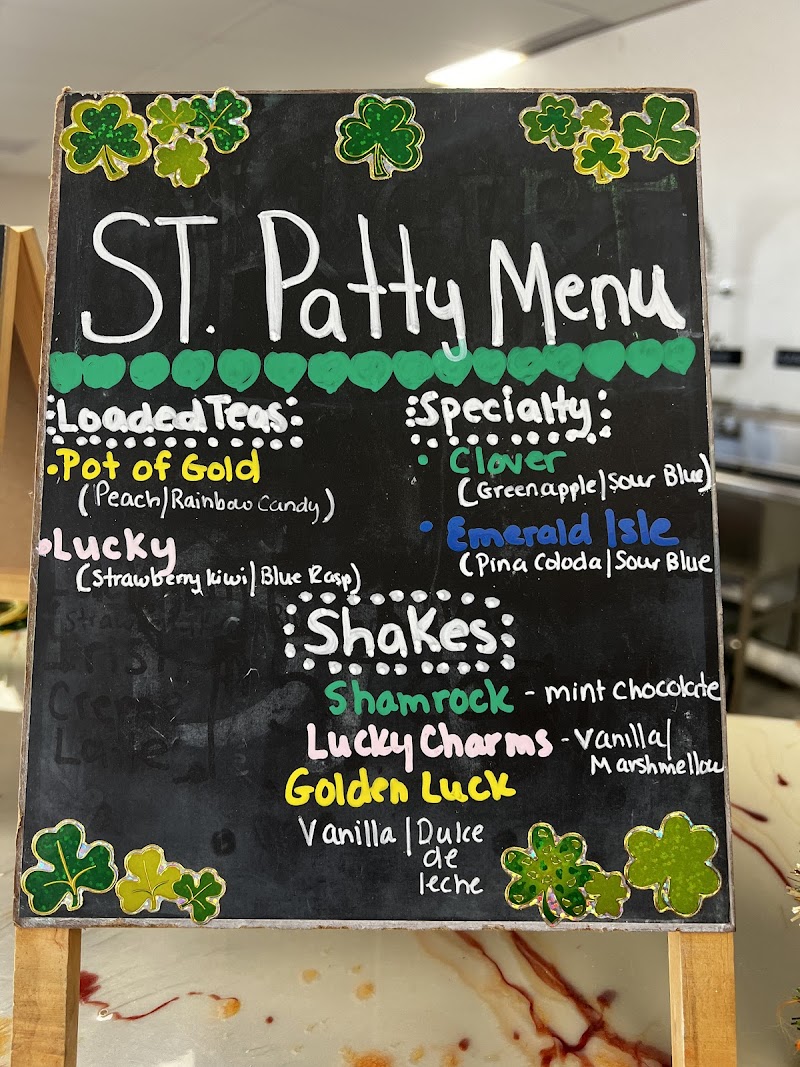 ST. Patty Menu
Loaded Teas
• Pot of Gold
(Peach/Rainbow Candy)
• Lucky
(Strawberry kiwi/Blue Rasp)
Specialty
• Clover
(Green apple/Sour Blue)
• Emerald Isle
(Pina Coloda/Sour Blue
Shakes
Shamrock - mint chocolate
Lucky Charms - Vanilla/
Marshmellow
Golden Luck
Vanilla | Dulce
de
leche